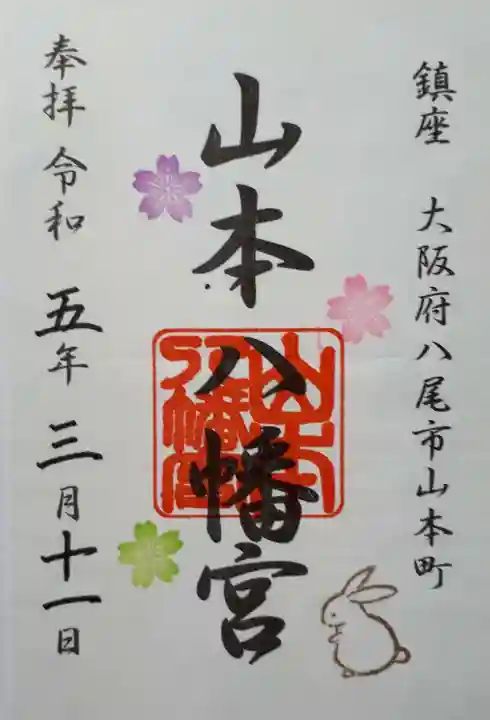 鎮座 大阪府八尾市山本町
山本八幡宮
山本八幡宮
奉拝 令和五年三月十一日